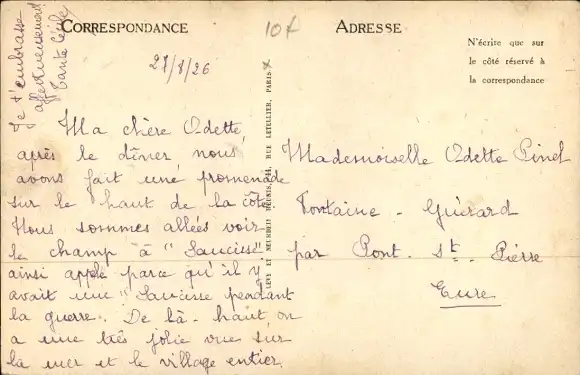 CORRESPONDANCE
ADRESSE
10f
N'écrire que sur
le côté réservé à
la correspondance
27/8/26
Ma chère Odette,
après le dîner, nous
avons fait une promenade
sur le haut de la côte.
Nous sommes allées voir
le champ à "Saucisse"
ainsi appelé parce qu'il y
avait une "Saucisse pendant
la guerre. De là-haut, on
a une très jolie vue sur
la mer et le village entier.
Je t'embrasse
affectueusement
Tante
LEVY ET NEURDEIN RÉUNIS, RUE LETELLIER, PARIS
Mademoiselle Odette Pinel
Fontaine-Guérard
par Pont-St-Pierre
Eure